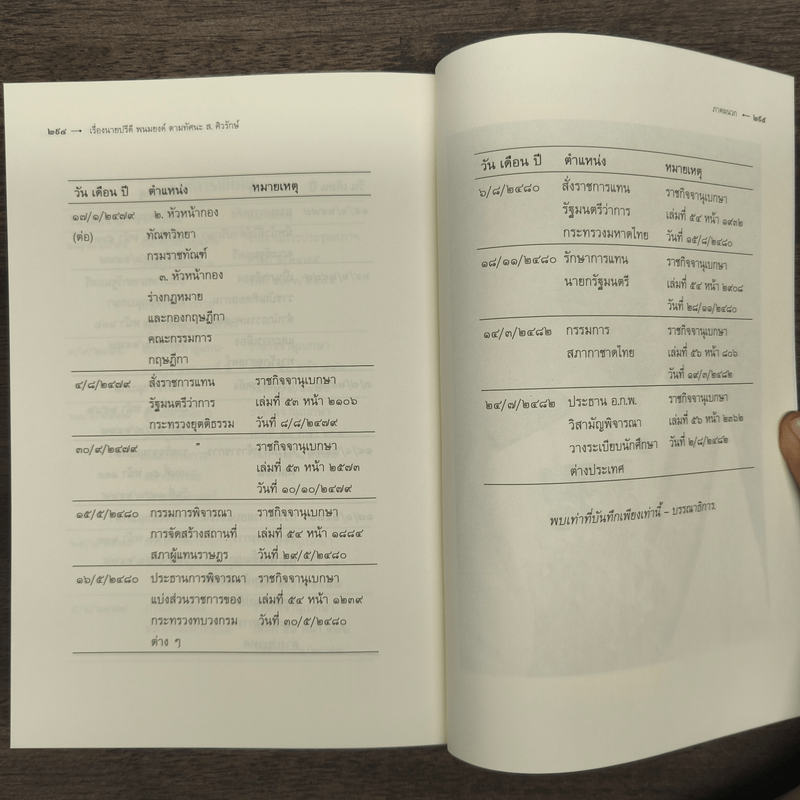 ๒๙๔ → เรื่องนายปรีดี พนมยงค์ ตามทัศนะ ส. ศิวรักษ์
วัน เดือน ปี ตำแหน่ง หมายเหตุ
๑๗/๑/๒๔๗๙ ๒. หัวหน้ากอง
(ต่อ) ทัณฑวิทยา
กรมราชทัณฑ์
๓. หัวหน้ากอง
ร่างกฎหมาย
และกองกฤษฎีกา
คณะกรรมการ
กฤษฎีกา
๔/๘/๒๔๗๙ สั่งราชการแทน ราชกิจจานุเบกษา
รัฐมนตรีว่าการ เล่มที่ ๕๓ หน้า ๒๑๐๖
กระทรวงยุตติธรรม วันที่ ๘/๘/๒๔๗๙
๓๐/๙/๒๔๗๙ " ราชกิจจานุเบกษา
เล่มที่ ๕๓ หน้า ๒๕๗๓
วันที่ ๑๐/๑๐/๒๔๗๙
๑๕/๕/๒๔๘๐ กรรมการพิจารณา ราชกิจจานุเบกษา
การจัดสร้างสถานที่ เล่มที่ ๕๔ หน้า ๑๘๘๔
สภาผู้แทนราษฎร วันที่ ๒๙/๕/๒๔๘๐
๑๖/๕/๒๔๘๐ ประธานการพิจารณา ราชกิจจานุเบกษา
แบ่งส่วนราชการของ เล่มที่ ๕๔ หน้า ๑๒๓๙
กระทรวงทบวงกรม วันที่ ๓๐/๕/๒๔๘๐
ต่าง ๆ
ภาคผนวก ← ๒๙๕
วัน เดือน ปี ตำแหน่ง หมายเหตุ
๖/๘/๒๔๘๐ สั่งราชการแทน ราชกิจจานุเบกษา
รัฐมนตรีว่าการ เล่มที่ ๕๔ หน้า ๑๙๓๒
กระทรวงมหาดไทย วันที่ ๑๕/๘/๒๔๘๐
๑๘/๑๑/๒๔๘๐ รักษาการแทน ราชกิจจานุเบกษา
นายกรัฐมนตรี เล่มที่ ๕๔ หน้า ๒๙๐๘
วันที่ ๒๘/๑๑/๒๔๘๐
๑๔/๓/๒๔๘๒ กรรมการ ราชกิจจานุเบกษา
สภากาชาดไทย เล่มที่ ๕๖ หน้า ๘๐๖
วันที่ ๑๙/๓/๒๔๘๒
๒๔/๗/๒๔๘๒ ประธาน อ.ก.พ. ราชกิจจานุเบกษา
วิสามัญพิจารณา เล่มที่ ๕๖ หน้า ๒๓๖๒
วางระเบียบนักศึกษา วันที่ ๒/๘/๒๔๘๒
ต่างประเทศ
พบเท่าที่บันทึกเพียงเท่านี้ – บรรณาธิการ.